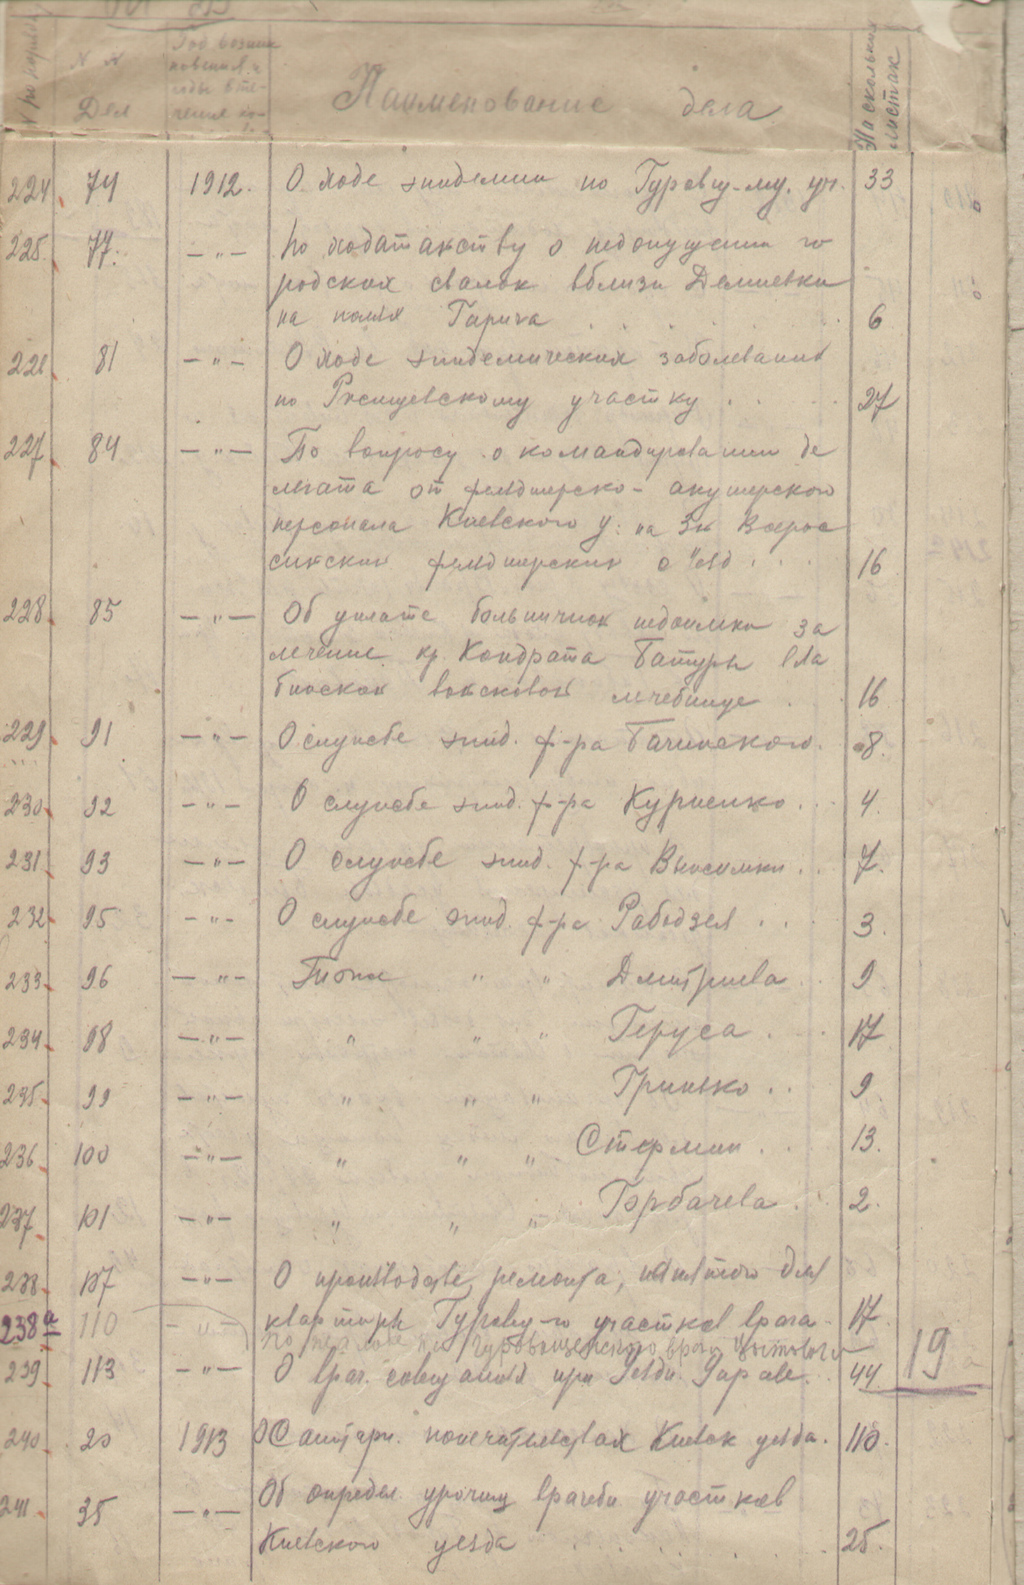 № по порядку
№ №
Дел
Год возник
новения и
годы в те-
чение ко-
Наименование дела
На скольких
листах
224. 74 1912. О ходе эпидемии по Гуровщ-му. уч. 33
225. 77. — " — По ходатайству о недопущении го
родских свалок вблизи Демиевки
на полях Гарича . . . 6
226. 81 — " — О ходе эпидемических заболеваний
по Ржищевскому участку . . . 27
227. 84 — " — По вопросу о командировании де
легата от фельдшерско-акушерского
персонала Киевского у. на 3й Всерос
сийский фельдшерский съезд . . . 16
228. 85 — " — Об уплате больничной недоимки за
лечение кр. Кондрата Батуры
войсковой лечебнице . 16
229. 91 — " — О службе эпид. ф-ра Бачинского. 8.
230. 92 — " — О службе эпид. ф-ра Куриенко . . . 4.
231. 93 — " — О службе эпид. ф-ра . . . 7.
232. 95 — " — О службе эпид. ф-ра Рабодзея . . . 3.
233. 96 — " — Тоже " " Дмитриева . . 9
234. 98 — " — " " " Геруса . . 17
235. 99 — " — " " " Гринько . . 9.
236. 100 — " — " " " Стермин . . 13.
237. 101 — " — " " " Горбачева . . 2.
238. 107 — " — О производстве ремонта, нанятой для
квартиры Гуровщ-го участков врача 17
238а 110 — " — Гуровщинского врача 19
239 113 — " — О врач. совещаниях при Уездн. Управе. 44
240. 20 1913 О Санитарн. попечительствах Киевск уезда. 110.
241. 35 — " — Об определ. урочищ врачебн участков
Киевского уезда . . . 25.